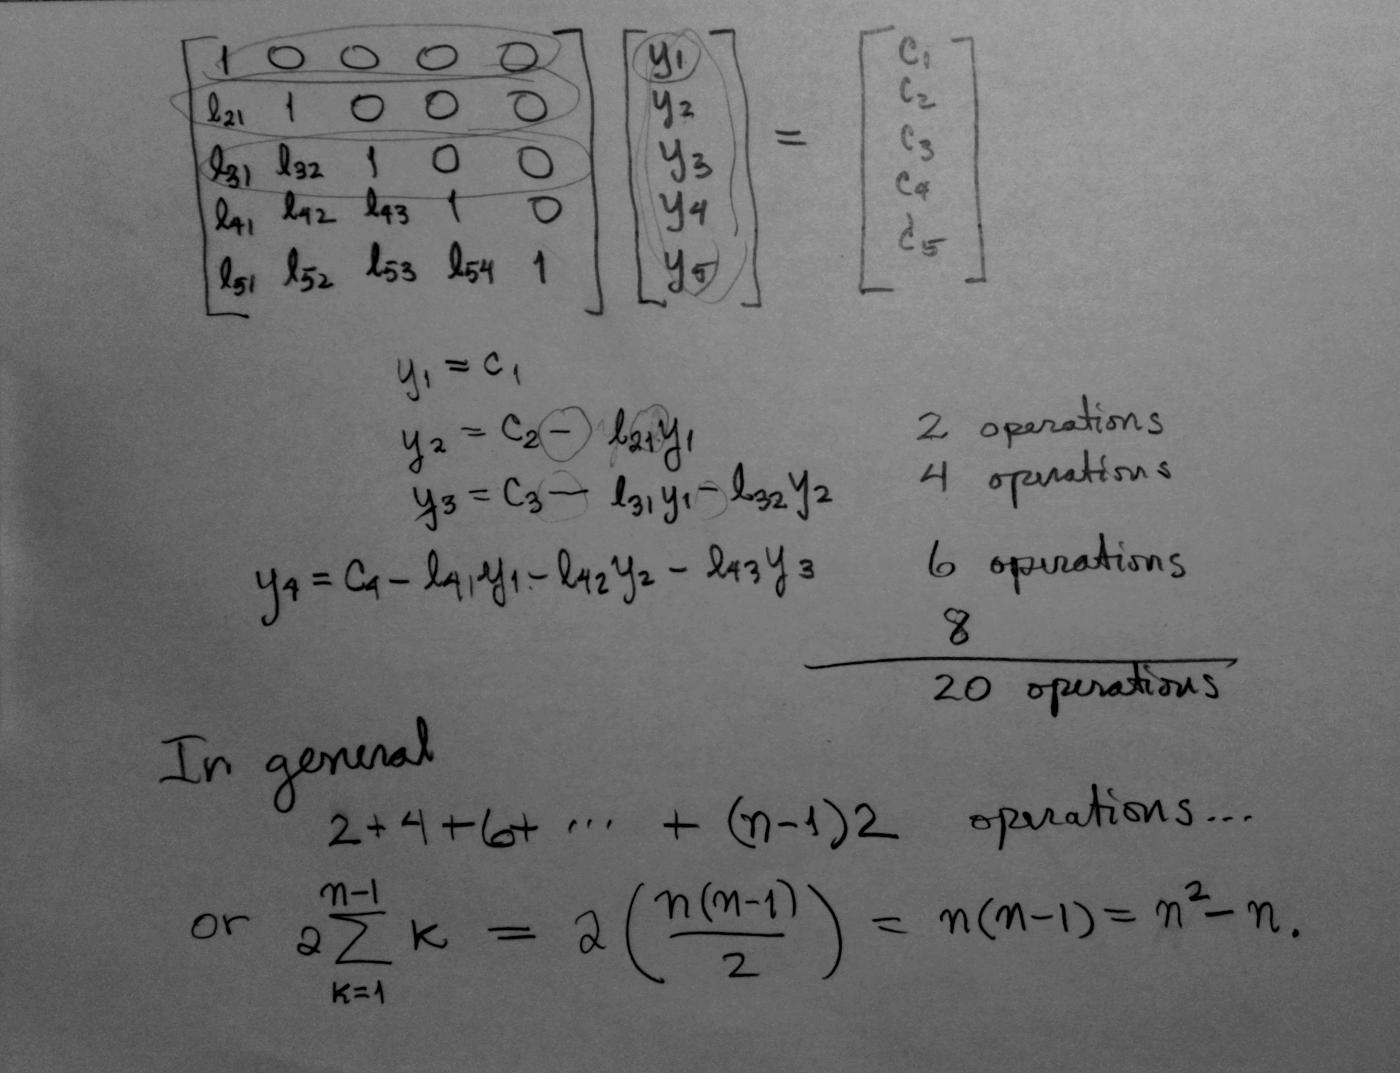 [ 1 0 0 0 0 ] [ y₁ ] [ c₁ ]
l₂₁ 1 0 0 0 y₂ c₂
l₃₁ l₃₂ 1 0 0 y₃ = c₃
l₄₁ l₄₂ l₄₃ 1 0 y₄ c₄
l₅₁ l₅₂ l₅₃ l₅₄ 1 y₅ c₅
y₁ = c₁
y₂ = c₂ − l₂₁y₁ 2 operations
y₃ = c₃ − l₃₁y₁ − l₃₂y₂ 4 operations
y₄ = c₄ − l₄₁y₁ − l₄₂y₂ − l₄₃y₃ 6 operations
8
20 operations
In general
2+4+6+ ... + (n−1)2 operations...
or 2 ∑_{k=1}^{n−1} k = 2 (n(n−1)/2) = n(n−1) = n² − n.